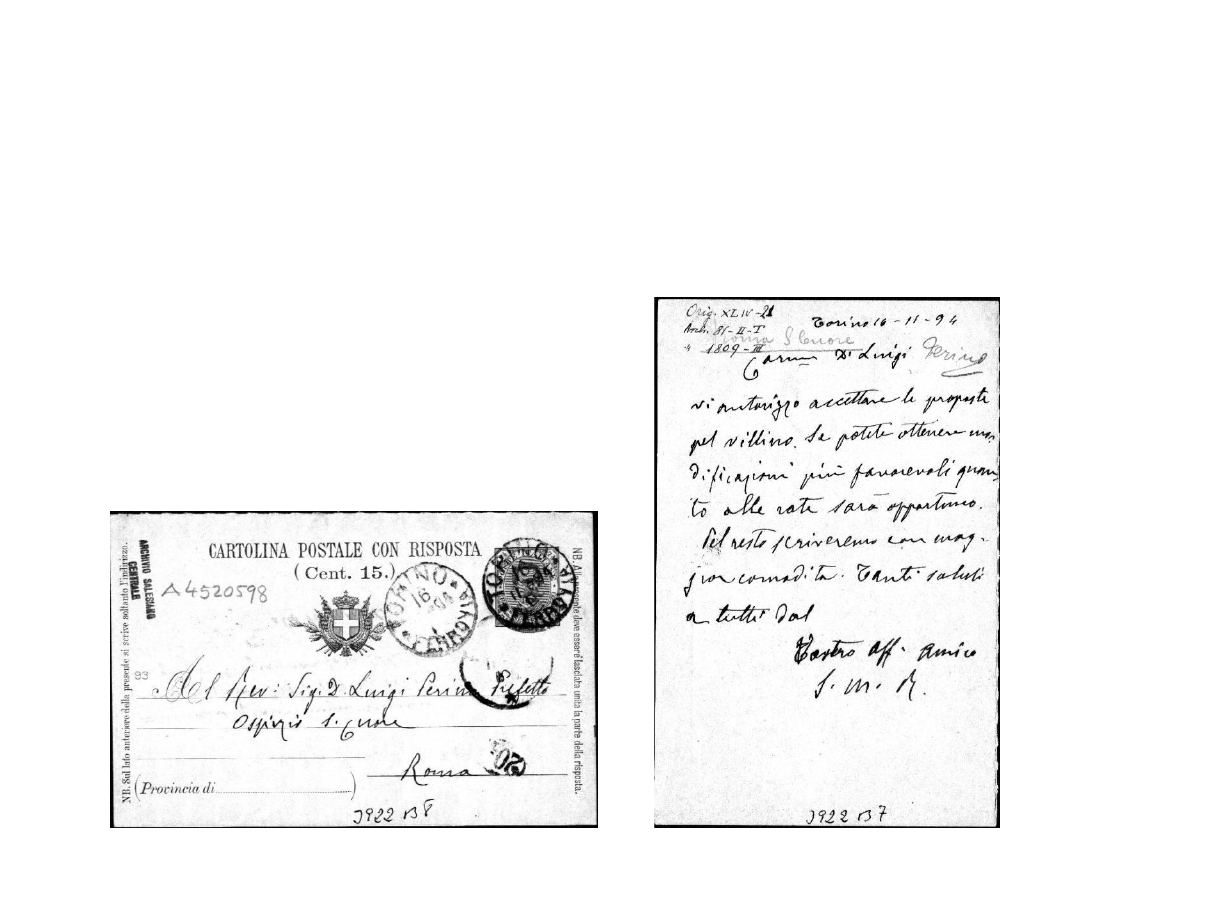 CARTOLINA POSTALE CON RISPOSTA
(Cent. 15.)
ARCHIVIO SALESIANO
CENTRALE
A4520598
NB. Sul lato anteriore della presente si scrive soltanto l'indirizzo.
NB. Alla presente deve essere lasciata unita la parte della risposta.
TORINO
16
FERROVIA
TORINO
FERROVIA
93
Al Rev: Sig. D. Luigi Perino Prefetto
Ospizio S. Cuore
Roma
(Provincia di
3922 B 8
Orig. XLIV-21
Arch. 81-II-T
" 1809-III
Roma S Cuore
Torino 16-11-94
Carmo D. Luigi Perino
vi autorizzo accettare le proposte
pel villino. Se potete ottenere mo-
dificazioni più favorevoli quan-
to alle rate sarà opportuno.
Pel resto scriveremo con mag-
gior comodità. Tanti saluti
a tutti dal
Vostro aff. amico
S. M. R.
3922 B 7